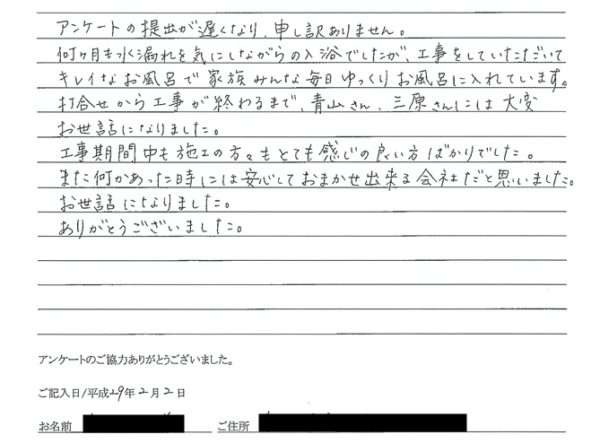 アンケートの提出が遅くなり、申し訳ありません。
何ヶ月も水漏れを気にしながらの入浴でしたが、工事をしていただいて
キレイなお風呂で家族みんな毎日ゆっくりお風呂に入れています。
打合せから工事が終わるまで、青山さん、三原さんには大変
お世話になりました。
工事期間中も施工の方々もとても感じの良い方ばかりでした。
また何かあった時には安心しておまかせ出来る会社だと思いました。
お世話になりました。
ありがとうございました。
アンケートのご協力ありがとうございました。
ご記入日/平成29年2月2日
お名前 ご住所